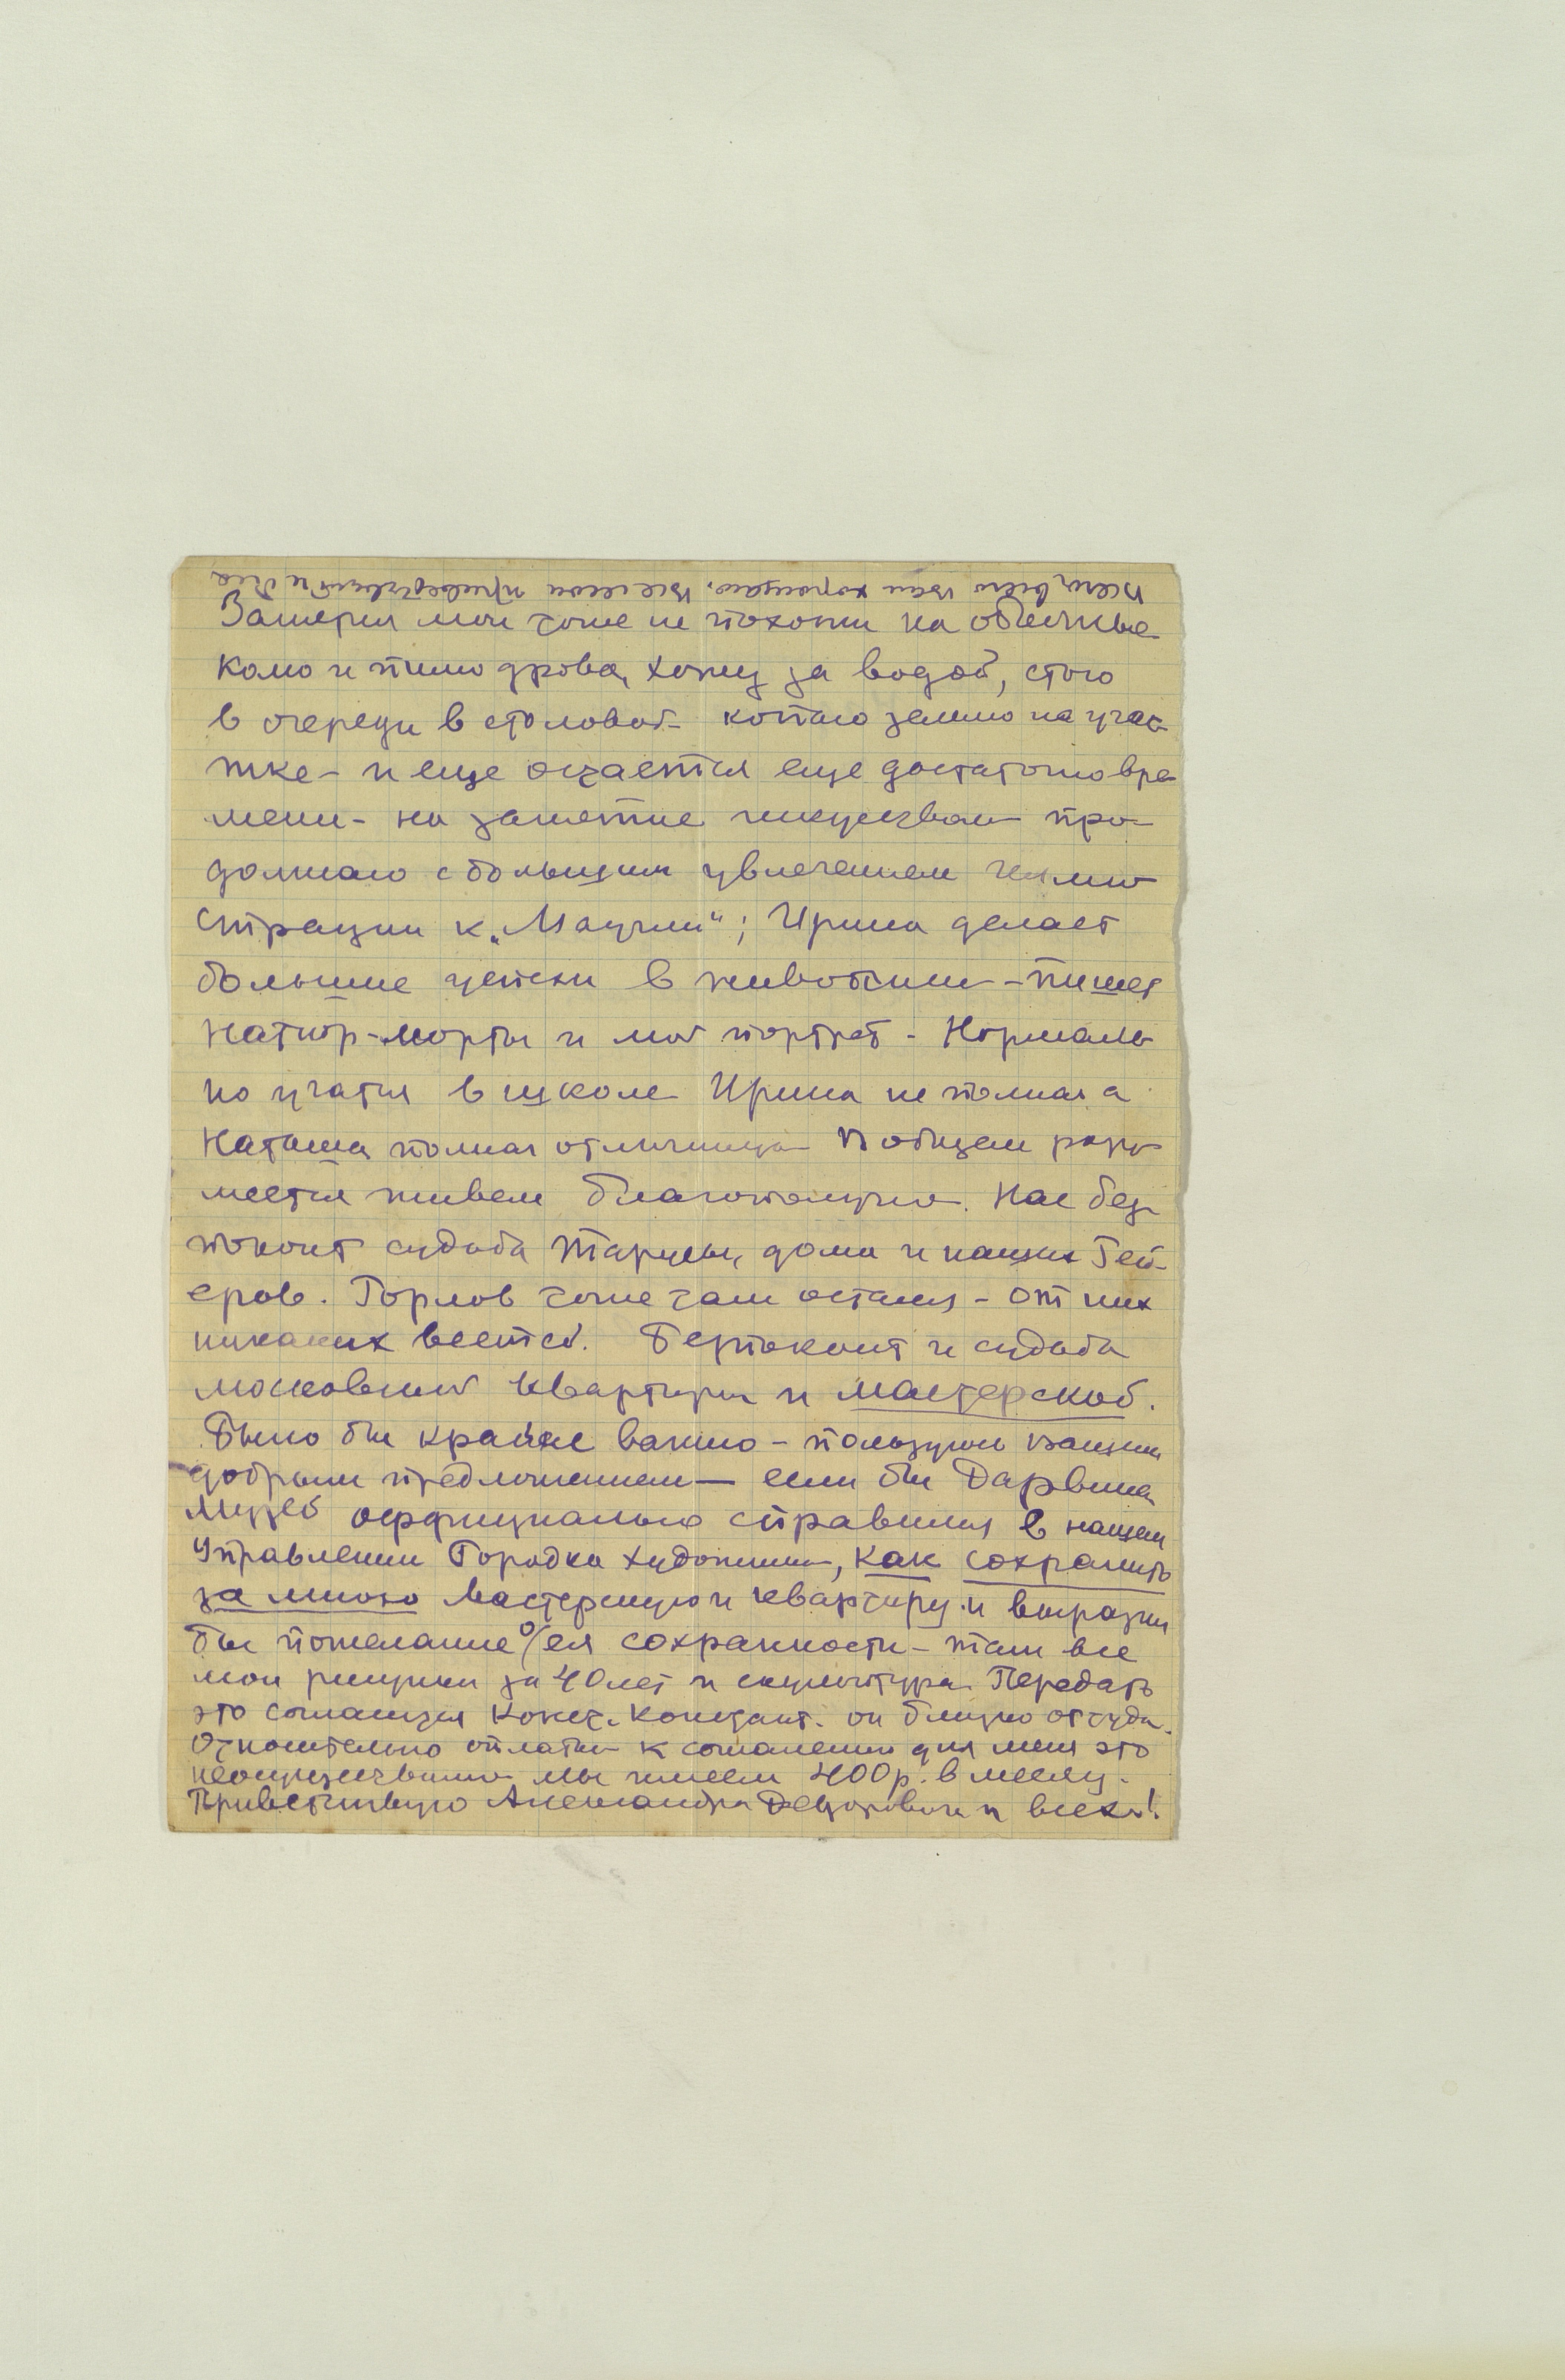 всего всего вам хорошего. Все мои приветствуют и Вас
Занятия мои тоже не похожи на обычные
колю и пилю дрова, хожу за водой, стою
в очереди в столовой – копаю землю на учас
тке – и еще остается еще достаточно вре
мени – на занятие искусством – про
должаю с большим увлечением иллю
страции к „Маугли“; Ирина делает
большие успехи в живописи – пишет
натюр-морты и мой портрет – Нормаль
но учатся в школе Ирина не полная а
Наташа полная отличница – В общем разу
меется живем благополучно. Нас без
покоит судьба Тарусы, дома и наших Гей
еров. Горлов тоже там остался – от них
никаких вестей. Безпокоит и судьба
московской квартиры и мастерской.
Было бы крайне важно – пользуюсь вашим
добрым предложением — если бы Дарвина
Музей оффициально справился в нашем
Управлении Городка художников, как сохранить
за мною мастерскую и квартиру и выразил
бы пожелание о/ ея сохранности – там все
мои рисунки за 40 лет и скульптура. Передать
это согласился Конст. Констант. он близко оттуда.
Относительно оплаты к сожалению для меня это
неосуществимо мы имеем 400р. в месяц.
Приветствую Александра Федоровича и всех!